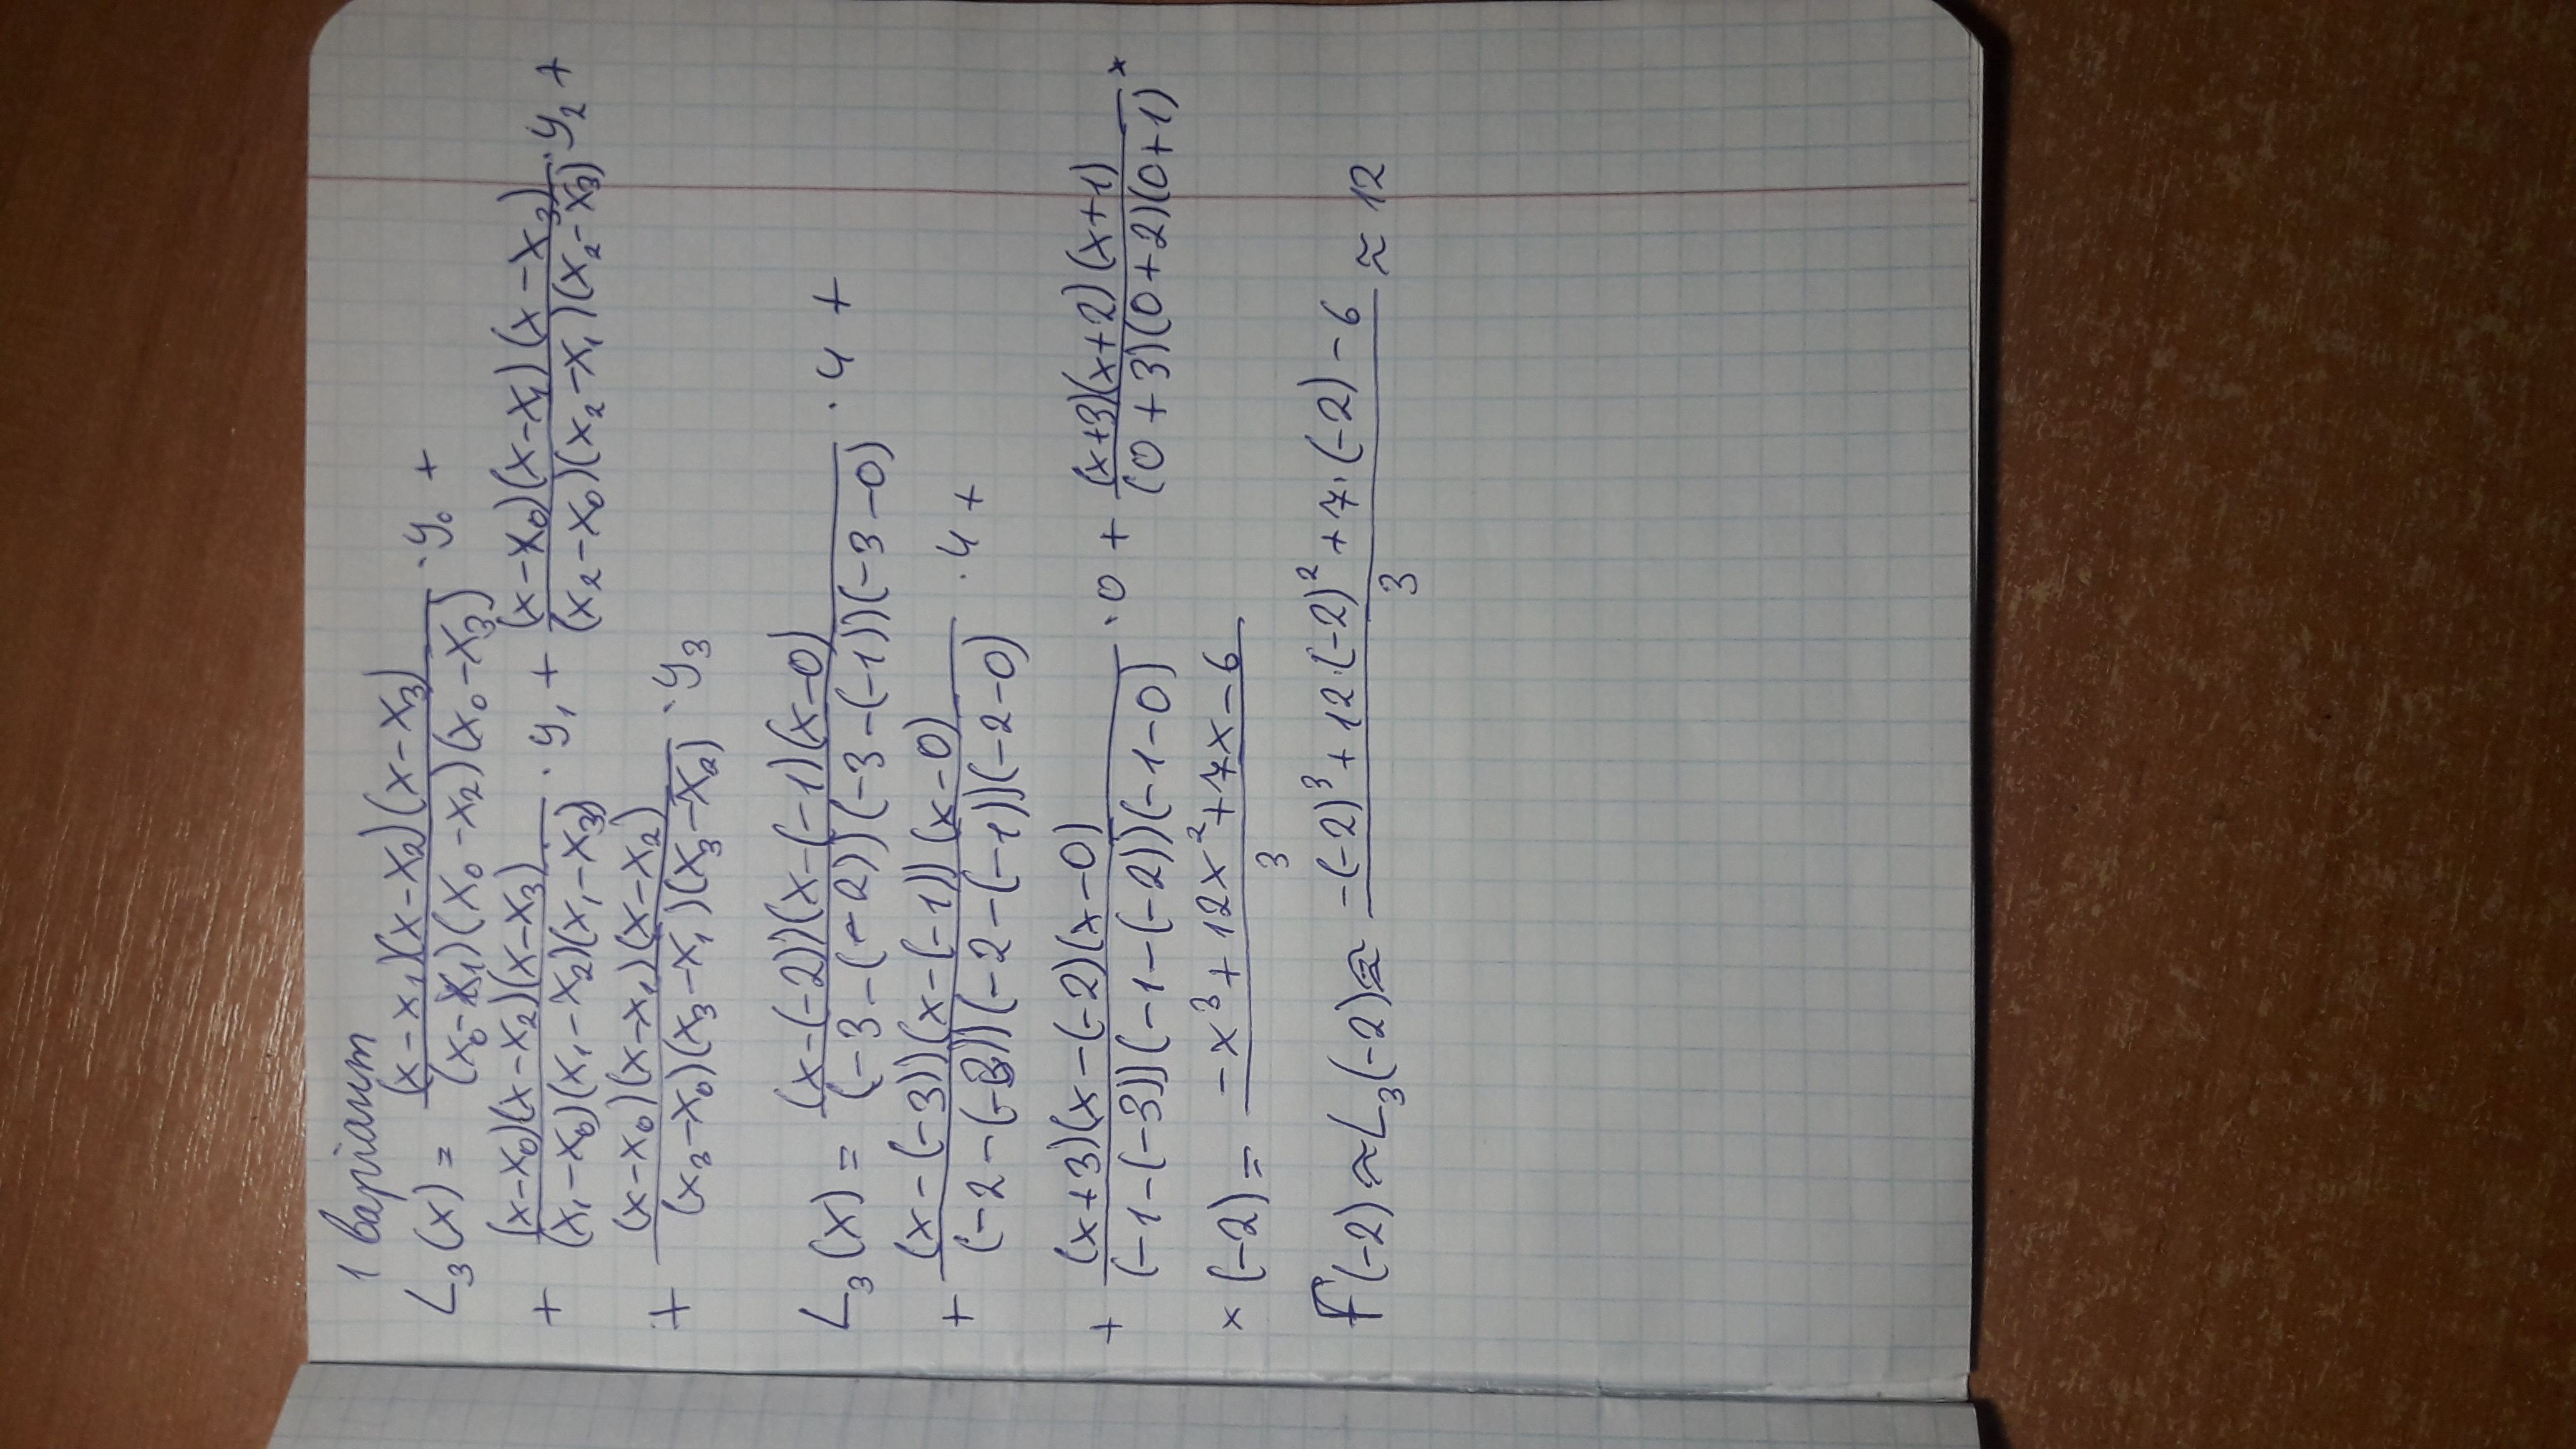 1 варіант
L₃(x) = (x-x₁)(x-x₂)(x-x₃) / (x₀-x₁)(x₀-x₂)(x₀-x₃) · y₀ +
+ (x-x₀)(x-x₂)(x-x₃) / (x₁-x₀)(x₁-x₂)(x₁-x₃) · y₁ + (x-x₀)(x-x₁)(x-x₃) / (x₂-x₀)(x₂-x₁)(x₂-x₃) · y₂ +
+ (x-x₀)(x-x₁)(x-x₂) / (x₃-x₀)(x₃-x₁)(x₃-x₂) · y₃
L₃(x) = (x-(-2))(x-(-1)(x-0) / (-3-(-2))(-3-(-1))(-3-0) · 4 +
+ (x-(-3))(x-(-1))(x-0) / (-2-(-3))(-2-(-1))(-2-0) · 4 +
+ (x+3)(x-(-2)(x-0) / (-1-(-3))(-1-(-2))(-1-0) · 0 + (x+3)(x+2)(x+1) / (0+3)(0+2)(0+1) ×
× (-2) = -x³+12x²+7x-6 / 3
F(-2) ≈ L₃(-2) ≈ -(-2)³+12·(-2)²+7·(-2)-6 / 3 ≈ 12